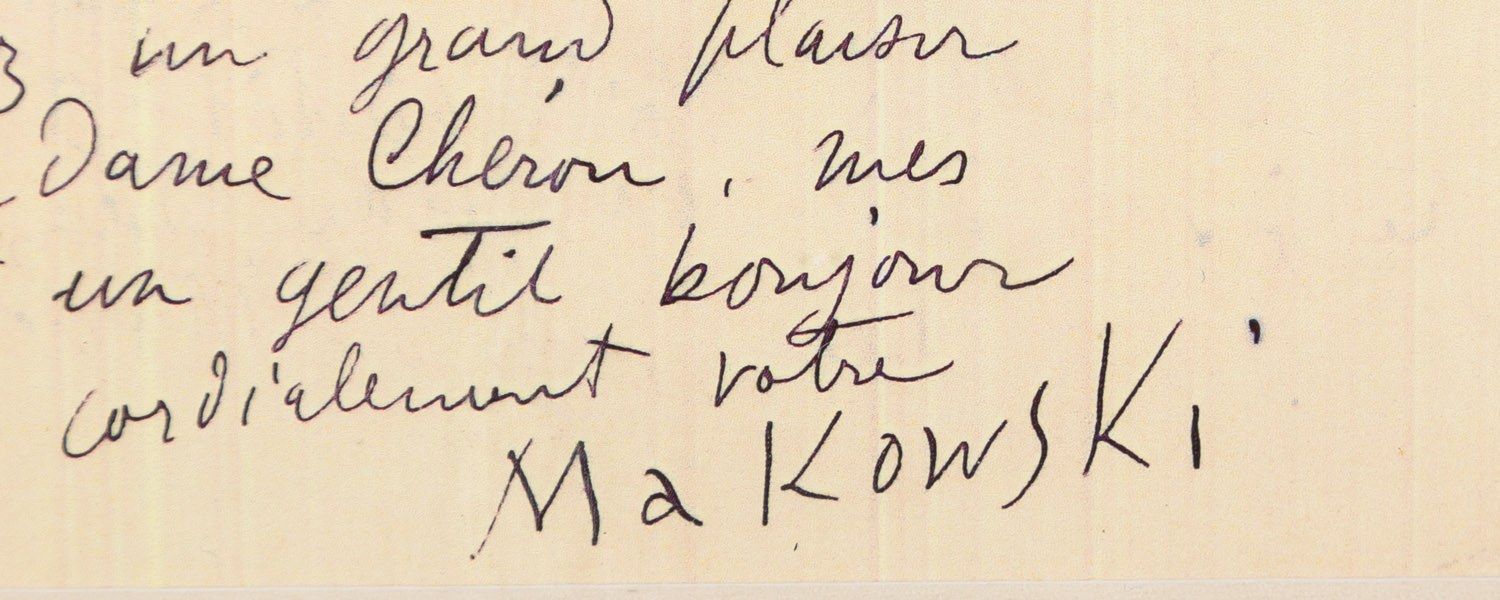 un grand plaisir
Dame Chéron, mes
un gentil bonjour
cordialement votre
MaKowsKi